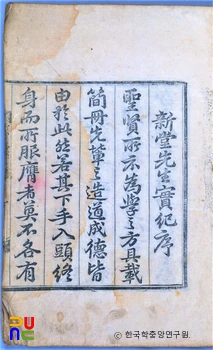 新堂先生實紀序
聖賢所云為學之方具載
簡冊先輩之造道成德皆
由於此然若其下手入頭終
身而所服膺者莫不各有
ⓒ 한국학중앙연구원.